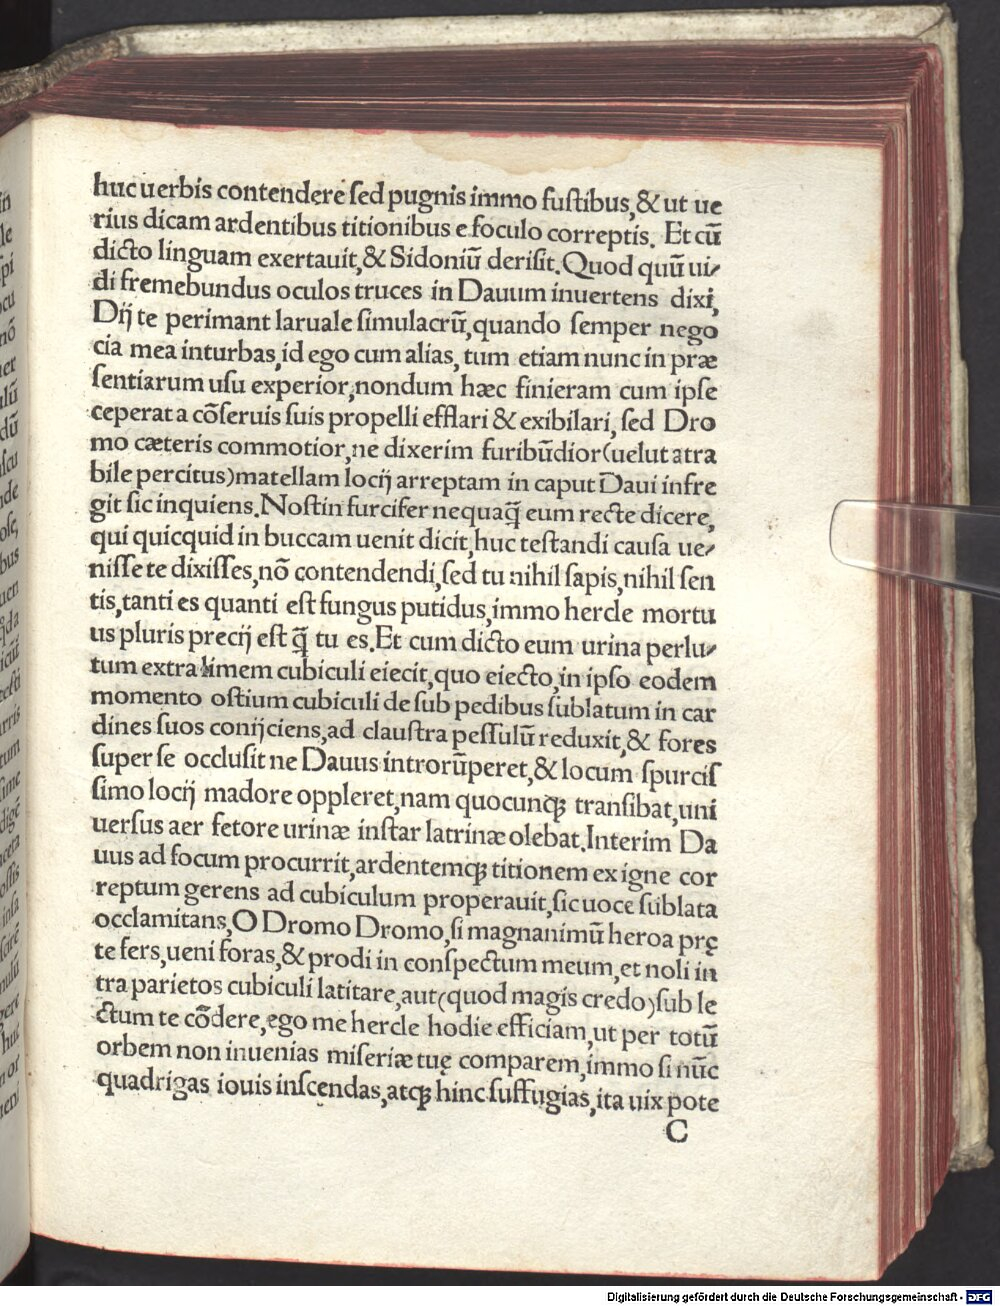 huc uerbis contendere sed pugnis immo fustibus,& ut ue
rius dicam ardentibus titionibus e foculo correptis. Et cū
dicto linguam exertauit,& Sidoniū derisit. Quod quū ui/
di fremebundus oculos truces in Dauum inuertens dixi,
Dij te perimant laruale simulacrū,quando semper nego
cia mea inturbas,id ego cum alias, tum etiam nunc in præ
sentiarum usu experior,nondum hæc finieram cum ipse
ceperat a cōseruis suis propelli efflari & exibilari, sed Dro
mo cæteris commotior,ne dixerim furibūdior(uelut atra
bile percitus)matellam locij arreptam in caput Daui infre
git sic inquiens.Nostin furcifer nequaq̄ eum recte dicere,
qui quicquid in buccam uenit dicit,huc testandi causa ue/
nisse te dixisses,nō contendendi,sed tu nihil sapis,nihil sen
tis,tanti es quanti est fungus putidus,immo hercle mortu
us pluris precij est q̄ tu es.Et cum dicto eum urina perlu/
tum extra limem cubiculi eiecit,quo eiecto,in ipso eodem
momento ostium cubiculi de sub pedibus sublatum in car
dines suos conijciens,ad claustra pessulū reduxit,& fores
super se occlusit ne Dauus introrūperet,& locum spurcis
simo locij madore oppleret,nam quocunq; transibat,uni
uersus aer fetore urinæ instar latrinæ olebat.Interim Da
uus ad focum procurrit,ardentemq; titionem ex igne cor
reptum gerens ad cubiculum properauit,sic uoce sublata
occlamitans,O Dromo Dromo,si magnanimū heroa prę
te fers,ueni foras,& prodi in conspectum meum,et noli in
tra parietos cubiculi latitare,aut(quod magis credo)sub le
ctum te cōdere,ego me hercle hodie efficiam,ut per totū
orbem non inuenias miseriæ tuę comparem,immo si nūc
quadrigas iouis inscendas,atq; hinc suffugias,ita uix pote
C
Digitalisierung gefördert durch die Deutsche Forschungsgemeinschaft - DFG